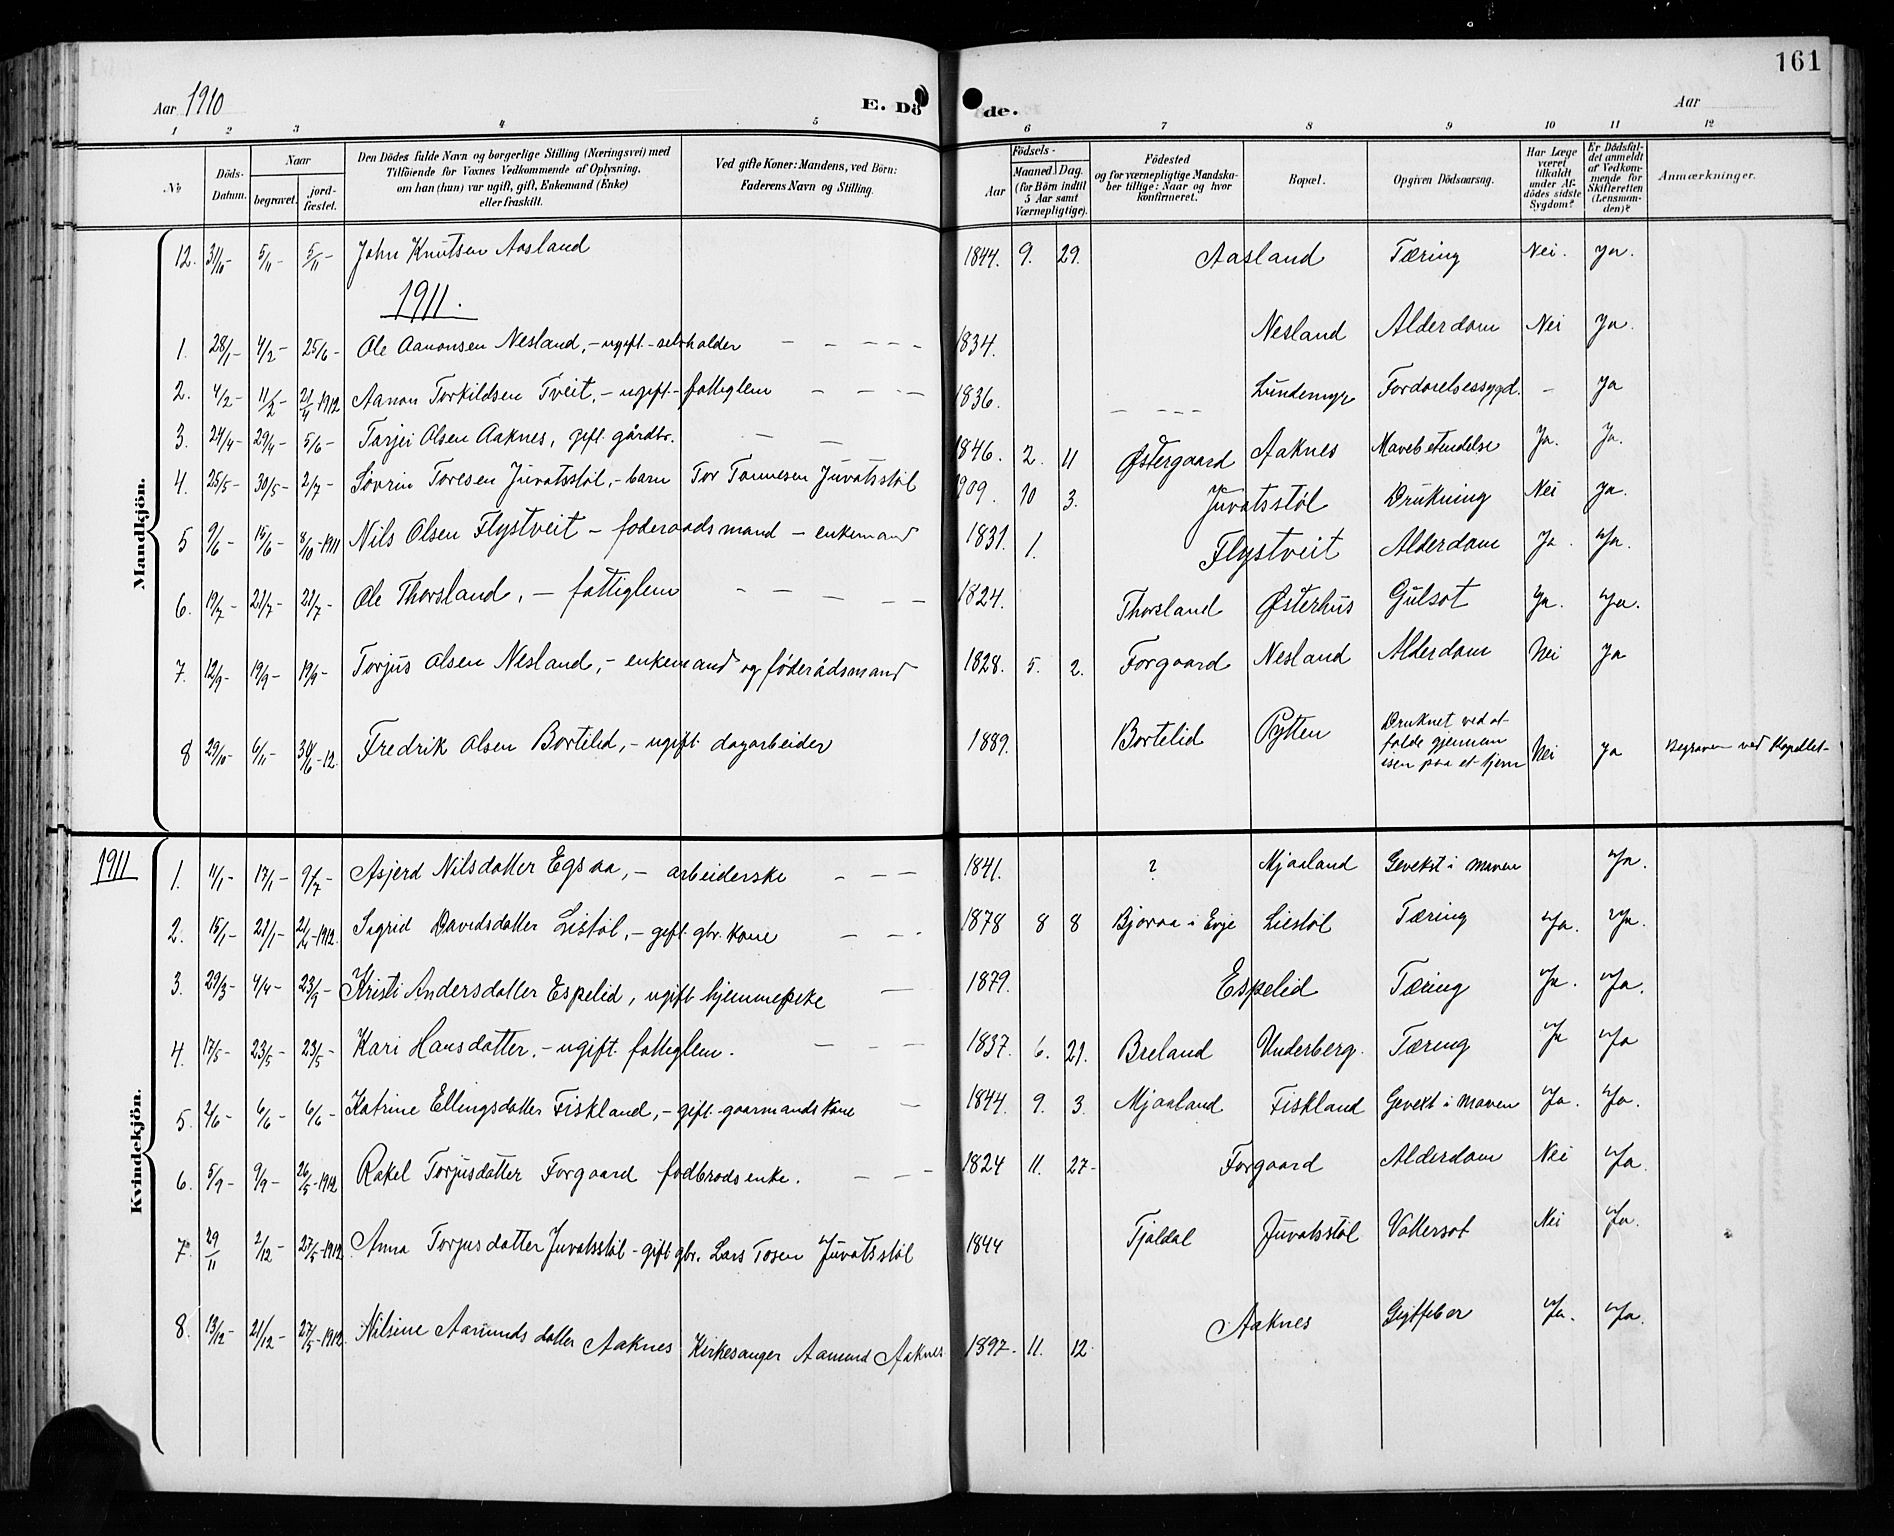 161
Aar 1910
E. Dö de.
Aar
1 2 3 4 5 6 7 8 9 10 11 12
No
Döds-Datum.
Naar
begravet.
jord-fæstet.
Den Dödes fulde Navn og borgerlige Stilling (Næringsvei) med
Tilföiende for Voxnes Vedkommende af Oplysning,
om han (hun) var ugift, gift, Enkemand (Enke)
eller fraskilt.
Ved gifte Koner: Mandens, ved Börn:
Faderens Navn og Stilling.
Födsels-
Aar
Maaned. Dag.
(for Börn indtil
5 Aar samt
Værnepligtige).
Födested
og for værnepligtige Mandska-
ber tillige: Naar og hvor
konfirmeret.
Bopæl.
Opgiven Dödsaarsag.
Har Læge
været
tilkaldt
under Af-
dödes sidste
Sygdom?
Er Dödsfal-
det anmeldt
af Vedkom-
mende for
Skifteretten
(Lensman-
den)?
Anmærkninger.
Mandkjön.
12. 31/10 - 5/11 - 5/11 - John Knutsen Aasland 1844. 9. 29. Aasland Tæring Nei. ja.
1911.
1. 28/1 - 4/2 - 25/6 - Ole Aanonsen Nesland, - ugift - selvholder - - - - - 1834. Nesland Alderdom Nei ja.
2. 4/2 - 11/2 - 21/4 1912 Aanon Torkildsen Tveit, - ugift - fattiglem - - - - 1836. - - - - Lundemyr Fordøielsessygd. - ja
3. 24/4 - 29/4 - 5/6 - Tarjei Olsen Aaknes, gift gårdbr. - - 1846. 2. 11 Østergaard Aaknes Mavebetendelse Ja. Ja.
4. 25/5 - 30/5 - 2/7 - Søvrin Toresen Juvatsstøl, - barn Tor Tonnesen Juvatsstøl 1909. 10 3. Juvatsstøl Drukning Nei ja.
5 9/6 - 15/6 - 8/10 - 1911 Nils Olsen Flystveit - føderaadsmand - enkemand 1831. 1. Flystveit Alderdom Ja. Ja.
6. 19/7 - 21/7 - 21/7 - Ole Thorsland, - fattiglem - - - - - 1824. Thorsland Østerhus Gulsot Ja. Ja.
7. 12/9 - 19/9 - 19/9 - Torjus Olsen Nesland, - enkemand og føderådsmand 1828. 5. 2. Forgaard Nesland Alderdom Nei ja
8 29/10 - 6/11 - 30/6 - 12. Fredrik Olsen Bortelid, - ugift dagarbeider 1889. Bortelid Pytten Druknet ved at
falde gjennem
isen paa et tjern Nei ja Begraven ved Kapellet -
1911
Kvindekjön.
1. 11/1 - 17/1 - 9/7 - Asjerd Nilsdatter Egsaa, - arbeiderske - - - 1841. ? Mjaaland Gevekst i maven Ja.
2. 15/1 - 21/1 - 21/4 - 1912. Sigrid Davidsdatter Listøl, - gift gbr. kone - - - 1878 8 8 Bjoraa i Evje Liestøl Tæring Ja. Ja.
3. 29/3 - 4/4 - 23/9 - Kristi Andersdatter Espelid, ugift hjemmepike - 1879. Espelid Tæring Ja. Ja.
4. 17/5 - 23/5 - 23/5 - Kari Hansdatter. - ugift. fattiglem. - - - 1837. 6. 21. Breland Underberg. Tæring Ja Ja
5. 2/6 - 6/6 - 6/6 - Katrine Ellingsdatter Fiskland, - gift - gaarmands kone - 1844. 9. 3. Mjaaland Fiskland Gevekt i maven Ja. Ja.
6. 5/9 - 9/9 - 26/5 - 1912 Rakel Torjusdatter Forgaard fodbrods enke. - - - 1824 11. 27 - Forgaard Alderdom Nei Ja.
7. 29/11 2/12 - 27/5 - 1912 Anna Torjusdatter Juvatsstøl - gift gbr. Lars Tosen Juvatsstøl 1844 Tjaldal Juvatsstøl Vattersot Nei Ja.
8. 13/12 - 21/12 - 27/5 - 1912 Nilsine Aamunds datter Aaknes Kirkesanger Aamund Aaknes 1897 - 11. 12. Aaknes Gigtfeber Ja. Ja.